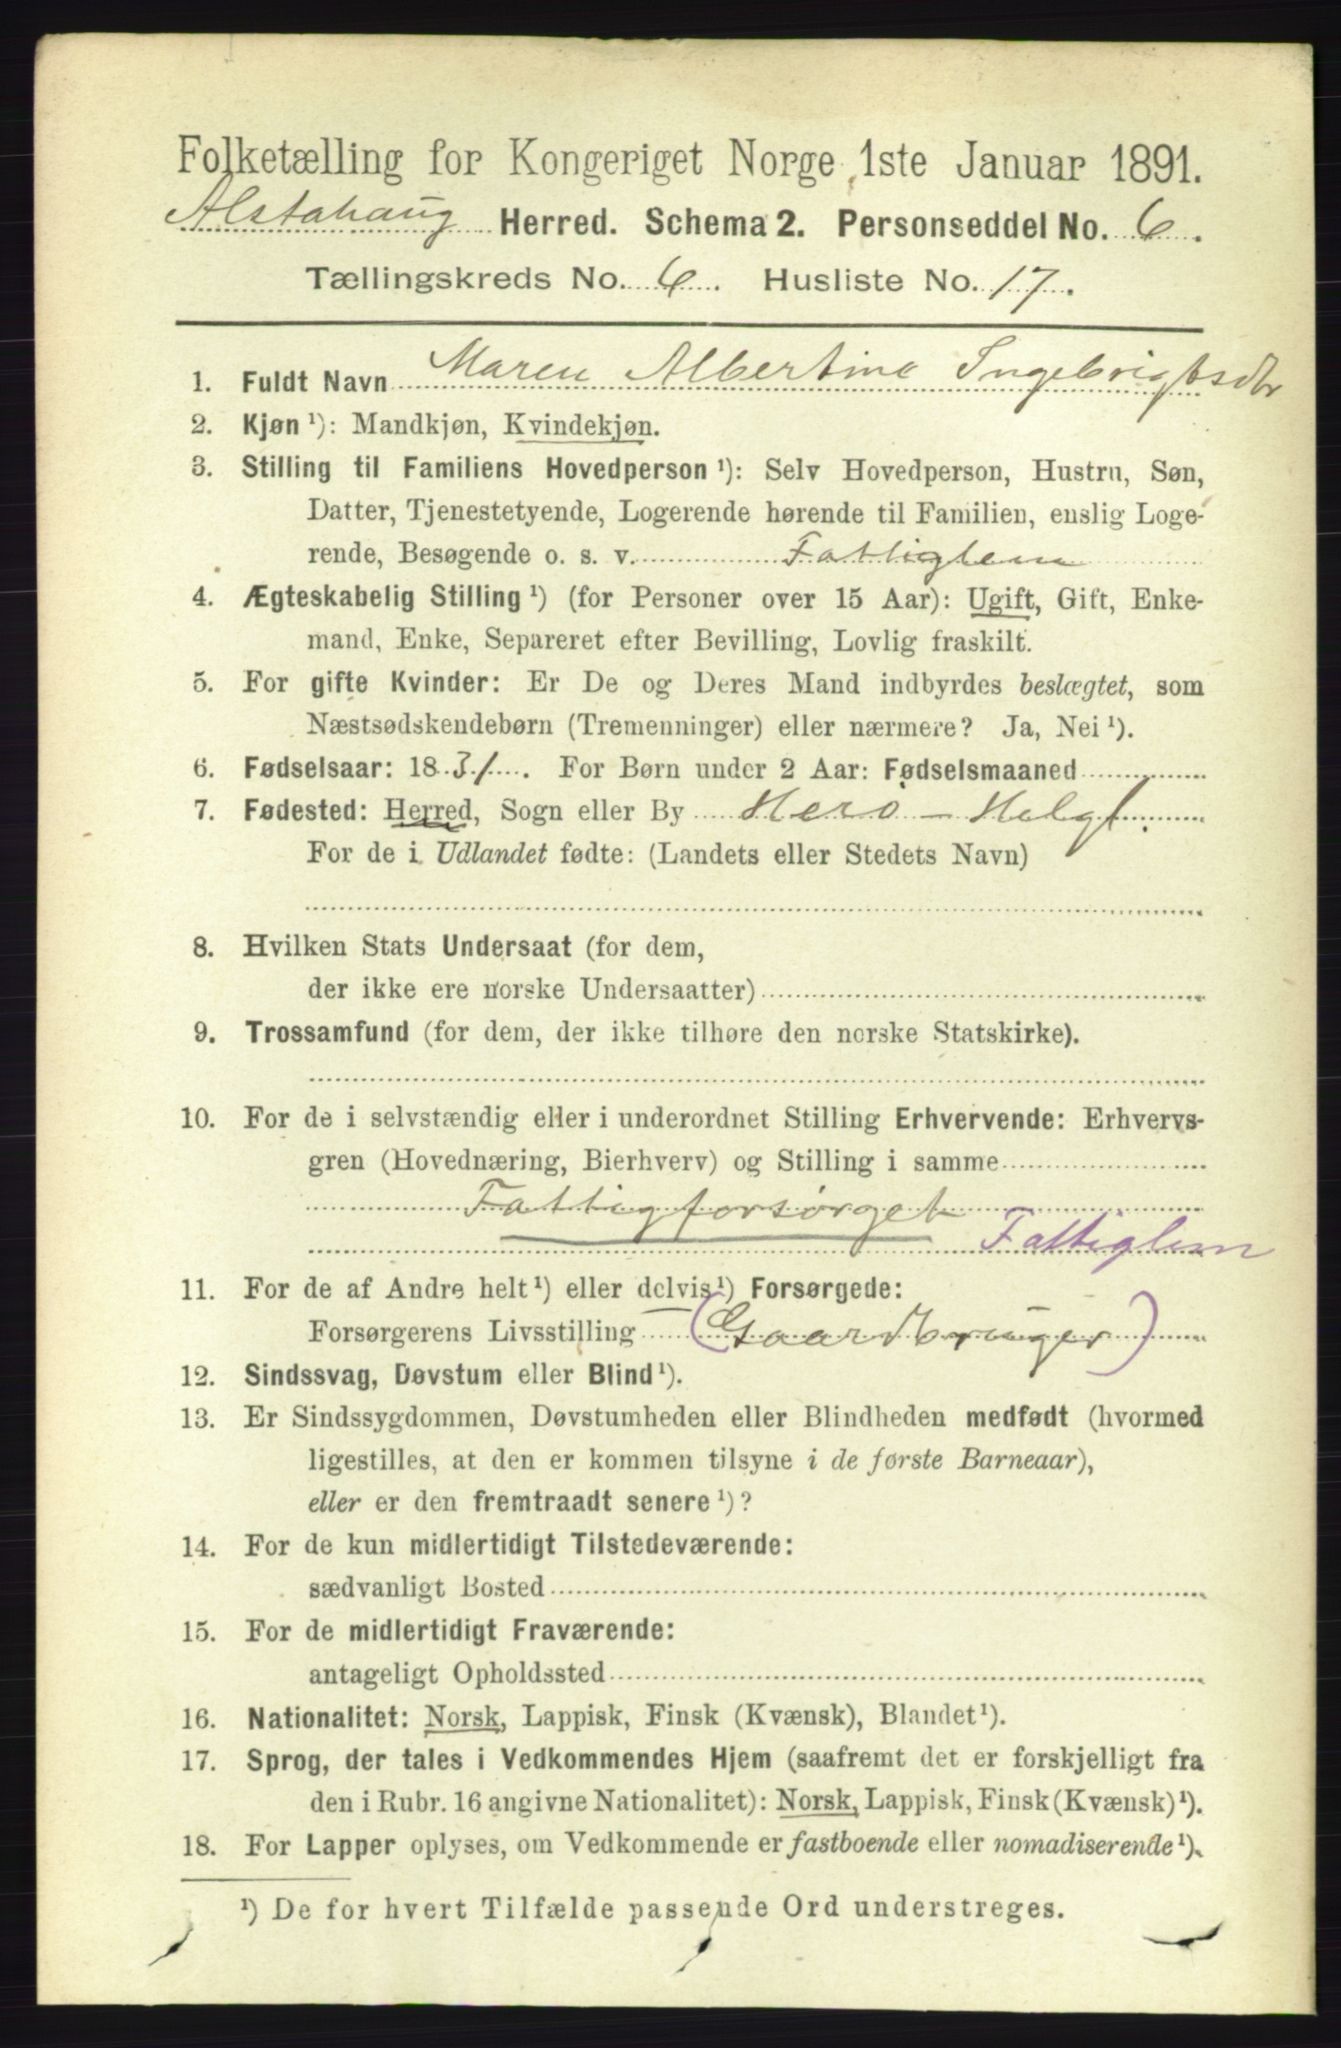 Folketælling for Kongeriget Norge 1ste Januar 1891.
Alstahaug Herred. Schema 2. Personseddel No. 6.
Tællingskreds No. 6. Husliste No. 17.
1. Fuldt Navn Maren Albertine Ingebrigtsdtr
2. Kjøn ¹): Mandkjøn, Kvindekjøn.
3. Stilling til Familiens Hovedperson ¹): Selv Hovedperson, Hustru, Søn,
Datter, Tjenestetyende, Logerende hørende til Familien, enslig Loge-
rende, Besøgende o. s. v. Fattiglem
4. Ægteskabelig Stilling ¹) (for Personer over 15 Aar): Ugift, Gift, Enke-
mand, Enke, Separeret efter Bevilling, Lovlig fraskilt.
5. For gifte Kvinder: Er De og Deres Mand indbyrdes beslægtet, som
Næstsødskendebørn (Tremenninger) eller nærmere? Ja, Nei ¹).
6. Fødselsaar: 1831. For Børn under 2 Aar: Fødselsmaaned
7. Fødested: Herred, Sogn eller By Herø - Helgl.
For de i Udlandet fødte: (Landets eller Stedets Navn)
8. Hvilken Stats Undersaat (for dem,
der ikke ere norske Undersaatter)
9. Trossamfund (for dem, der ikke tilhøre den norske Statskirke).
10. For de i selvstændig eller i underordnet Stilling Erhvervende: Erhvervs-
gren (Hovednæring, Bierhverv) og Stilling i samme
Fattigforsørget
Fattiglem
11. For de af Andre helt ¹) eller delvis ¹) Forsørgede:
Forsørgerens Livsstilling (Gaardbruger)
12. Sindssvag, Døvstum eller Blind ¹).
13. Er Sindssygdommen, Døvstumheden eller Blindheden medfødt (hvormed
ligestilles, at den er kommen tilsyne i de første Barneaar),
eller er den fremtraadt senere ¹)?
14. For de kun midlertidigt Tilstedeværende:
sædvanligt Bosted
15. For de midlertidigt Fraværende:
antageligt Opholdssted
16. Nationalitet: Norsk, Lappisk, Finsk (Kvænsk), Blandet ¹).
17. Sprog, der tales i Vedkommendes Hjem (saafremt det er forskjelligt fra
den i Rubr. 16 angivne Nationalitet): Norsk, Lappisk, Finsk (Kvænsk) ¹).
18. For Lapper oplyses, om Vedkommende er fastboende eller nomadiserende ¹).
¹) De for hvert Tilfælde passende Ord understreges.